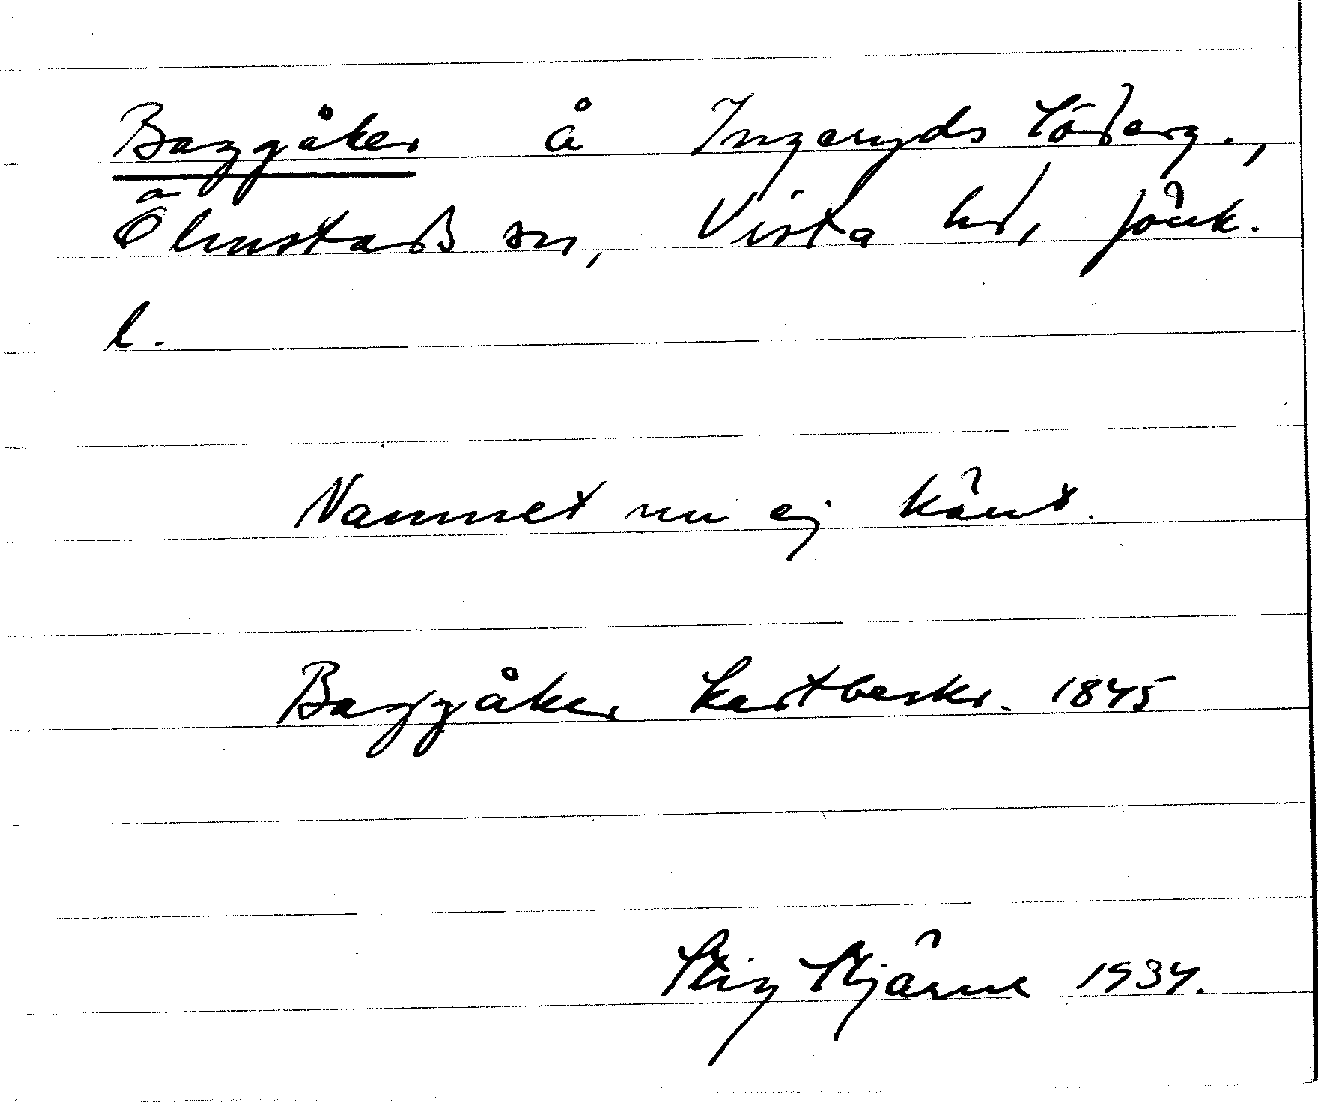 Baggåker å Ingeryds Söderg.,
Ölmstads sn, Vista hd, Jönk.
l.
Namnet nu ej känt.
Baggåker kartbeskr. 1845
Stig Stjärne 1934.